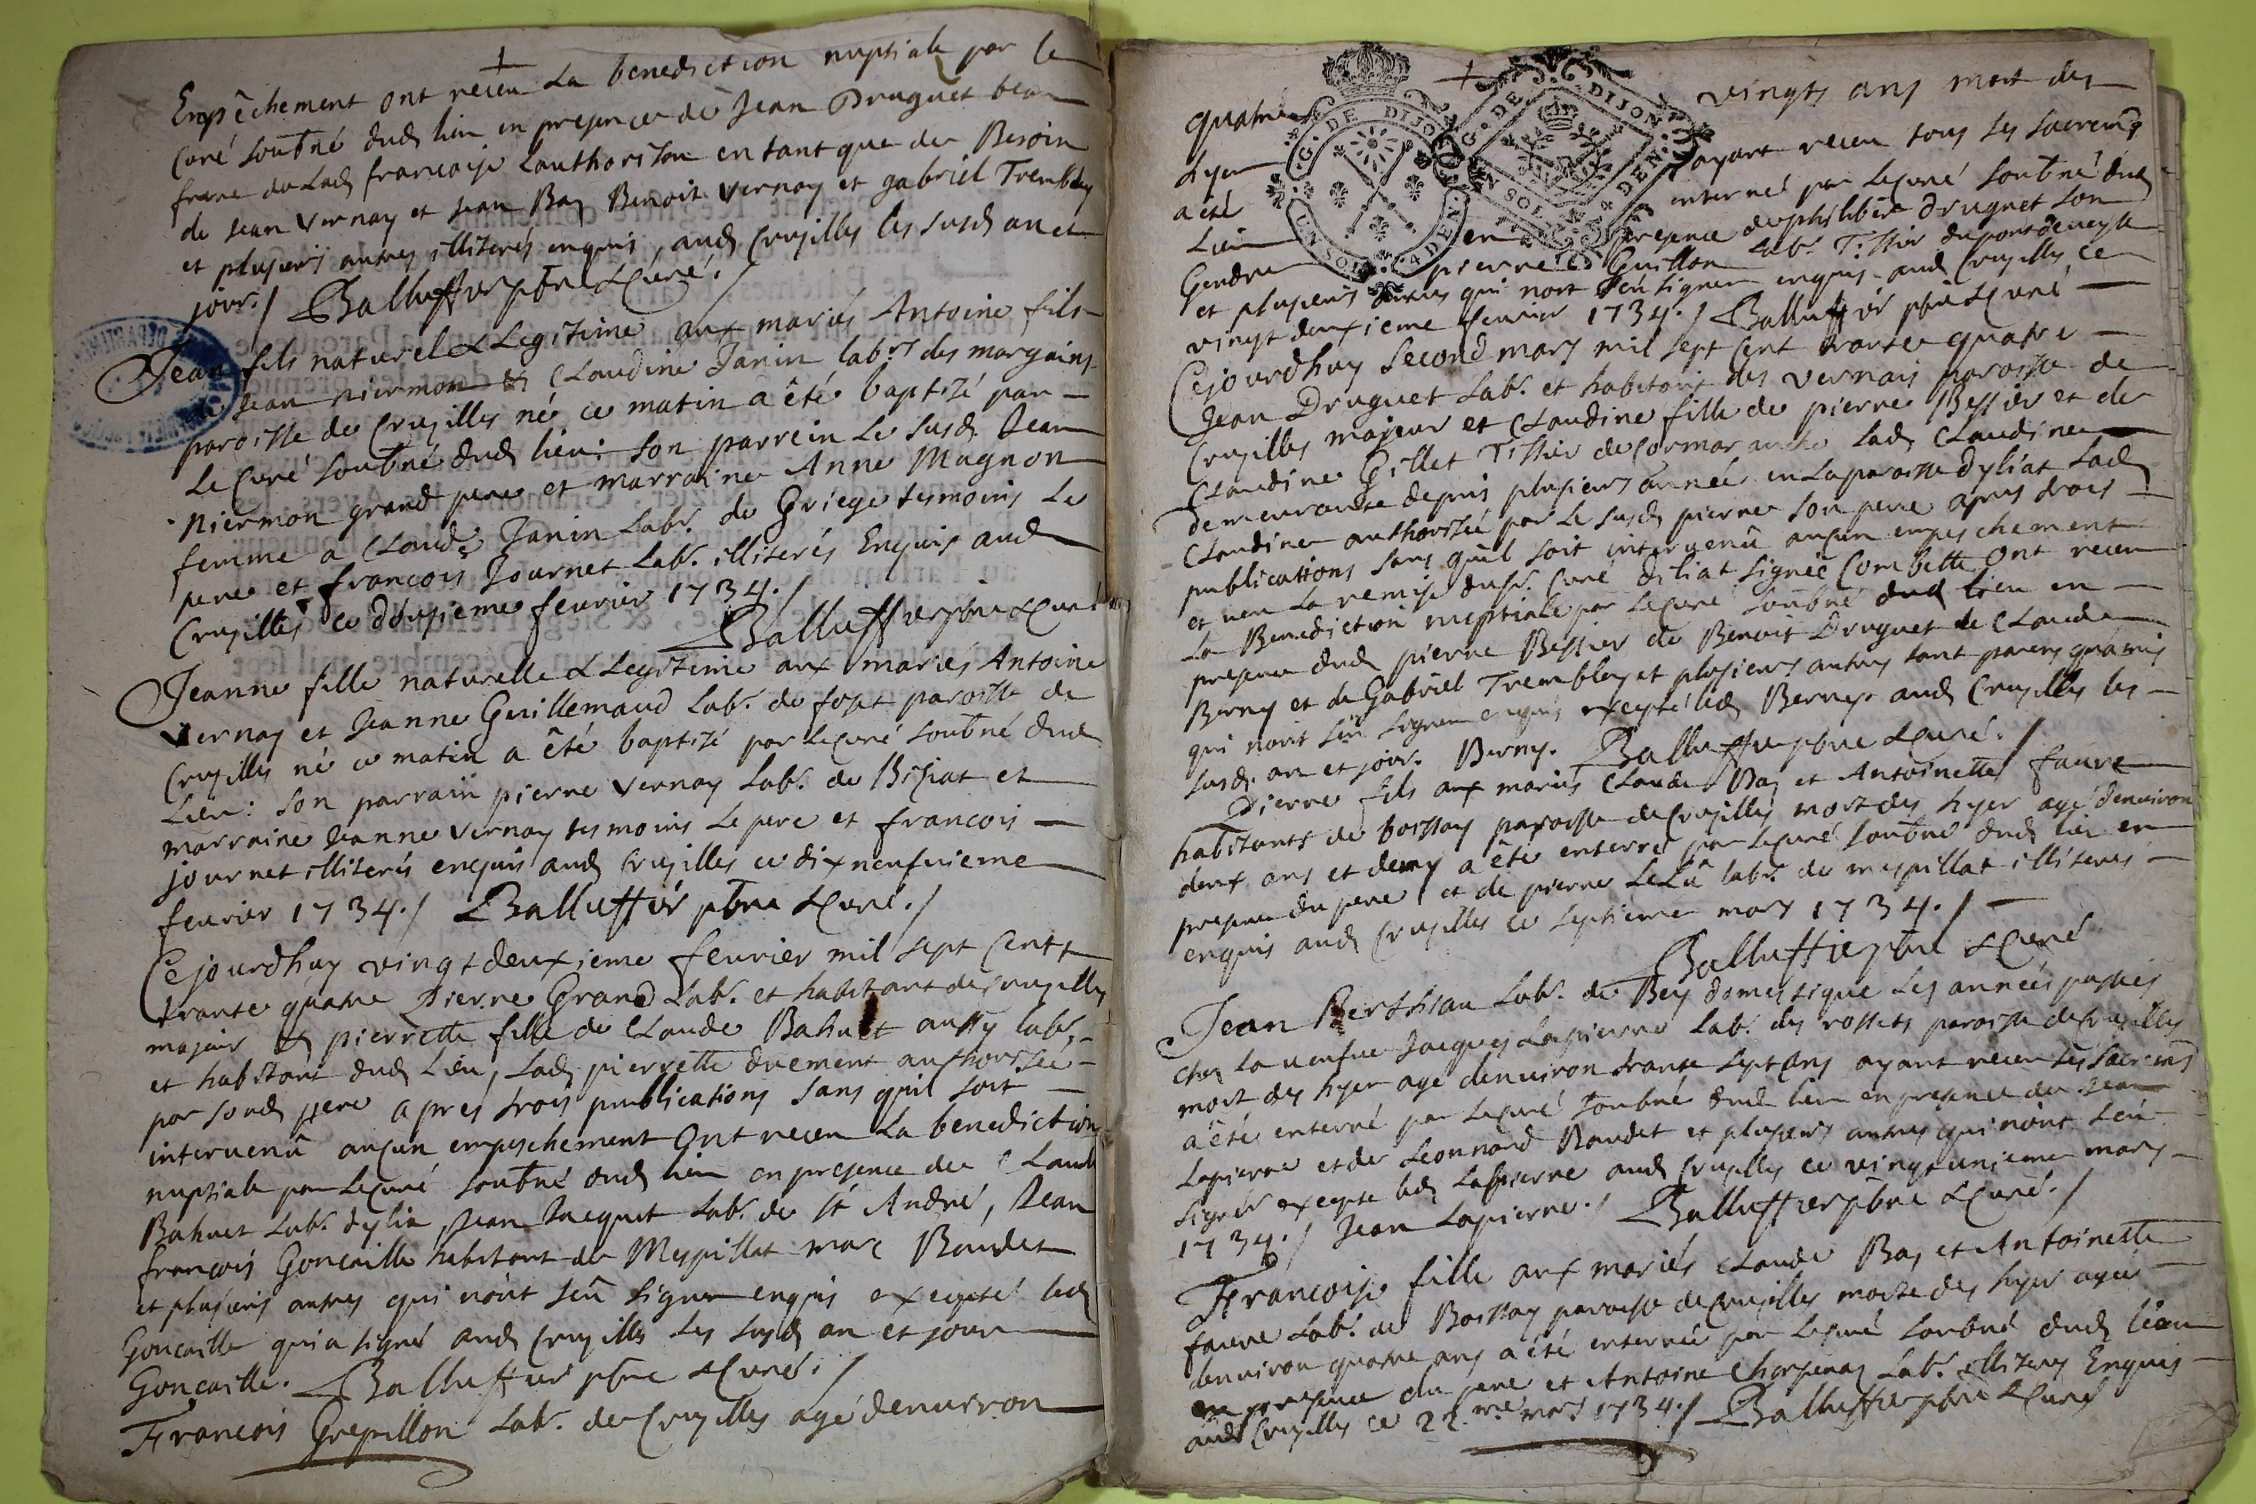 Empêchement ont receu La benediction nuptiale par le
Curé soubné dud lieu en presence de Jean Druguet beau
frere de Lad francoise Lauthorisant en tant que de Besoin
de Jean Vernay et Jean Bay Benoit Vernay et gabriel Trembley
et plusieurs autres illiterés enquis, aud Cruzilles les susd an et
jour./ Balluffier pbre & Curé./
Jean fils naturel & Legitime aux mariés Antoine fils
de Jean niermon & Claudine Janin labrs des marguins
paroisse de Cruzilles né ce matin a êté baptizé par
Le Curé soubné dud lieu: son parrein Le susd Jean
Niermon grand pere et marraine Anne Magnon
femme a Claude Janin Labr. de Griege tesmoins Le
pere et francois Journet Labr. illiterés Enquis aud
Cruzilles ce dousieme feurier 1734./
Balluffier pbre & Curé
Jeanne fille naturelle & Legitime aux mariés Antoine
Vernay et Jeanne Guillemaud Labr. de fosat paroisse de
Cruzilles né ce matin a êté baptizé par Le Curé soubné dud
Lieu: son parrain pierre Vernay Labr. de Biziat et
marraine Jeanne Vernay tesmoins Le pere et francois
journet illiterés enquis aud Cruzilles ce dix neufuieme
feurier 1734./ Balluffier pbre & Curé./
Cejourdhuy vingt deuxieme feurier mil sept Cent
trante quatre Pierre Grand Labr. et habitant de Cruzilles
majeur & pierrette fille de Claude Bahuet aussy labr.
et habitant dud Lieu, Lad pierrette duement authorisée
par sond pere apres trois publications sans quil soit
interuenû aucun empeschement Ont receu La benediction
nuptiale par Le Curé soubné dud lieu en presence de Claude
Bahuet Labr. dylia, Jean Jacquet Labr. de st André, Jean
francois Goncaille habitant de Mespillat marc Baudet
et plusieurs autres qui nont seû signer enquis excepté led
Goncaille qui a signé aud Cruzilles Les susd an et jour
Goncaille. Balluffier pbre & Curé./
Francois Grepillon Labr. de Cruzilles agé denuiron
quatre vingts ans mort des
hyer ayant receu tous ses sacremts
a êté interré par Le Curé soubné dud
Lieu en presence de philibert druguet son
Gendre pierre Guillon Labr. Tissier du pont de ueyle
et plusieurs autres qui nont seu signer enquis aud Cruzilles ce
vingt deuxieme feurier 1734./ Balluffier pbre & Curé
Cejourdhuy Second mars mil sept Cent trante quatre
Jean Druguet Labr. et habitant des Vernais paroisse de
Cruzilles majeur et Claudine fille de pierre Bessier et de
Claudine Gillet Tissier de Cormaranche Lad Claudine
demeurante depuis plusieurs année en La paroisse dyliat Lad
Claudine authorisée par Le susd pierre son pere apres trois
publications sans quil soit interuenû aucun empeschement
et ueu La remise du sr. Curé diliat signée Combette Ont receu
La Benediction nuptiale par Le Curé soubné dud lieu en
presence dud pierre Bessier de Benoit Druguet de Claude
Berny et de Gabriel Trembley et plusieurs autres tant parens quamis
qui nont seu signer enquis excepté led Berny aud Cruzilles les
susd. an et jour. Berny. Balluffier pbre & Curé./
Pierre fils aux mariés Claude Bay et Antoinette faure
habitants de boissay paroisse de Cruzilles mort des hyer agé denuiron
deux ans et demy a êté enterré par Le Curé soubné dud lieu en
presence du pere et de pierre LeLû labr. de mespillat illiterés
enquis aud Cruzilles ce septieme mars 1734./
Balluffier pbre & Curé
Jean Berthillau Labr. de Bey domestique Les années passées
chez La ueufue Jacques Lapierre Labr. des rossets paroisse de Cruzilles
mort des hyer agé denuiron trante sept ans ayant receu ses sacremts
a êté enterré par Le Curé soubné dud lieu en presence de Jean
Lapierre et de Leonnard Baudet et plusieurs autres qui nont seu
signer excepte led Lapierre aud Cruzilles ce vingt unieme mars
1734./ Jean Lapierre./ Balluffier pbre & Curé./
Francoise fille aux mariés Claude Bay et Antoinette
faure Labr. de Boissay paroisse de Cruzilles morte des hyer agée
denuiron quatre ans a êté enterrée par Le Curé soubné dud lieu
en presence du pere et Antoine Charpenay Labr. illiterés Enquis
aud Cruzilles ce 22.me mars 1734./ Balluffier pbre & Curé